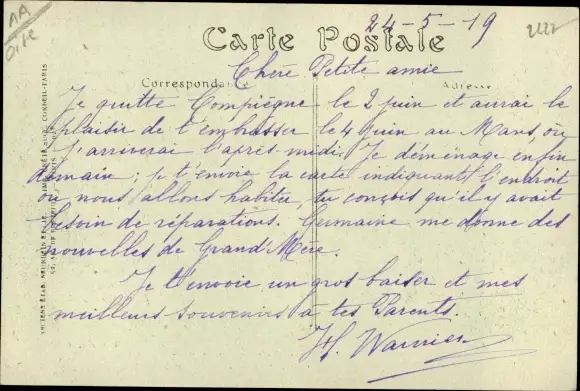 AA
Oise
24-5-19
2222
Carte Postale
Correspondance
Adresse
Chère Petite amie
Je quitte Compiègne le 2 juin et aurai le
plaisir de t'embrasser le 4 juin au Mans, où
j'arriverai l'après-midi. Je déménage enfin
demain ; je t'envoie la carte indiquant l'endroit
où nous allons habiter, tu conçois qu'il y avait
besoin de réparations. Germaine me donne des
nouvelles de Grand'Mère.
Je t'envoie un gros baiser et mes
meilleurs souvenirs à tes Parents.